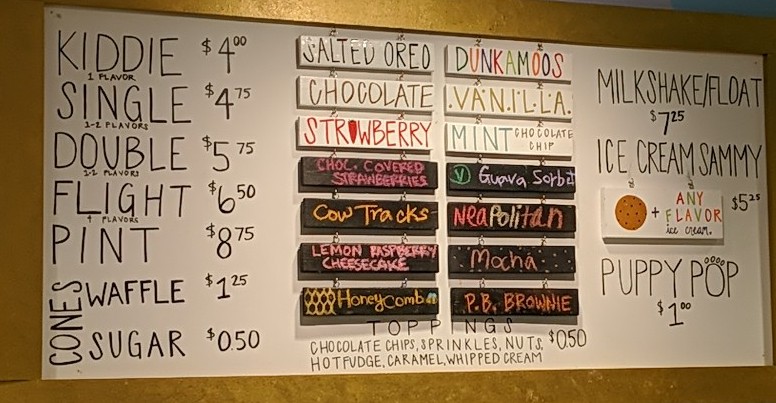 KIDDIE $4.00
1 FLAVOR
SINGLE $4.75
1-2 FLAVORS
DOUBLE $5.75
1-2 FLAVORS
FLIGHT $6.50
4 FLAVORS
PINT $8.75
CONES
WAFFLE $1.25
SUGAR $0.50
SALTED OREO
CHOCOLATE
STRWBERRY
CHOC. COVERED
STRAWBERRIES
Cow Tracks
LEMON RASPBERRY
CHEESECAKE
Honeycomb
DUNKAMOOS
.VANILLA.
MINT CHOCOLATE
CHIP
V Guava Sorbet
Neapolitan
Mocha
P.B. BROWNIE
TOPPINGS
CHOCOLATE CHIPS, SPRINKLES, NUTS, $0.50
HOT FUDGE, CARAMEL, WHIPPED CREAM
MILKSHAKE/FLOAT
$7.25
ICE CREAM SAMMY
+ ANY
FLAVOR
ice cream.
$5.25
PUPPY POP
$1.00